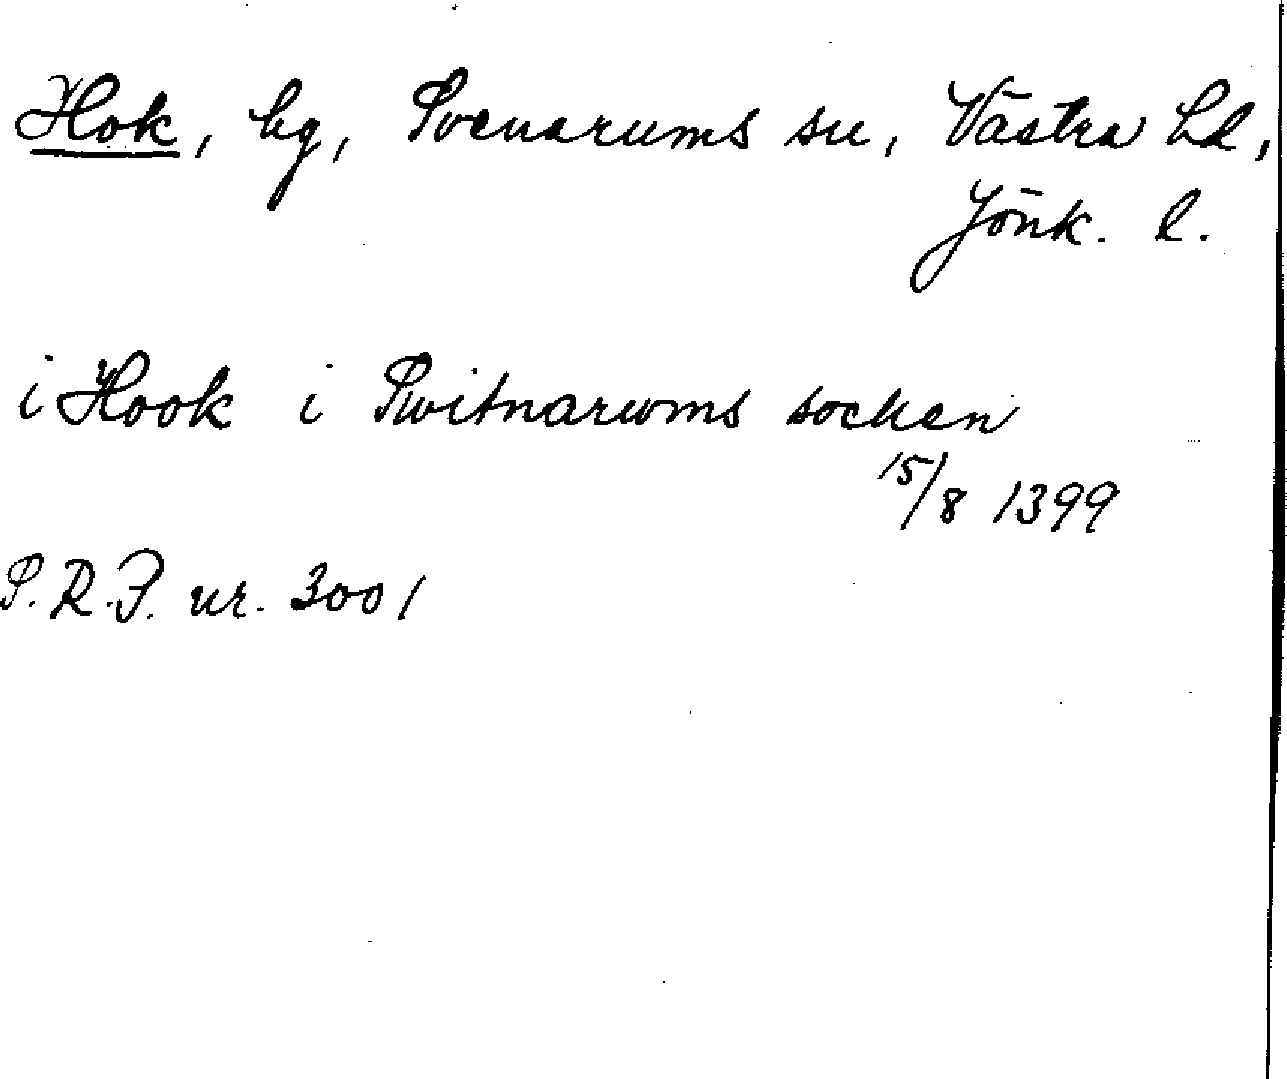 Hok, bg, Svenarums sn, Västra hd,
Jönk. l.
i Hook i Switnarwms socken
15/8 1399
S.R.P. nr. 3001